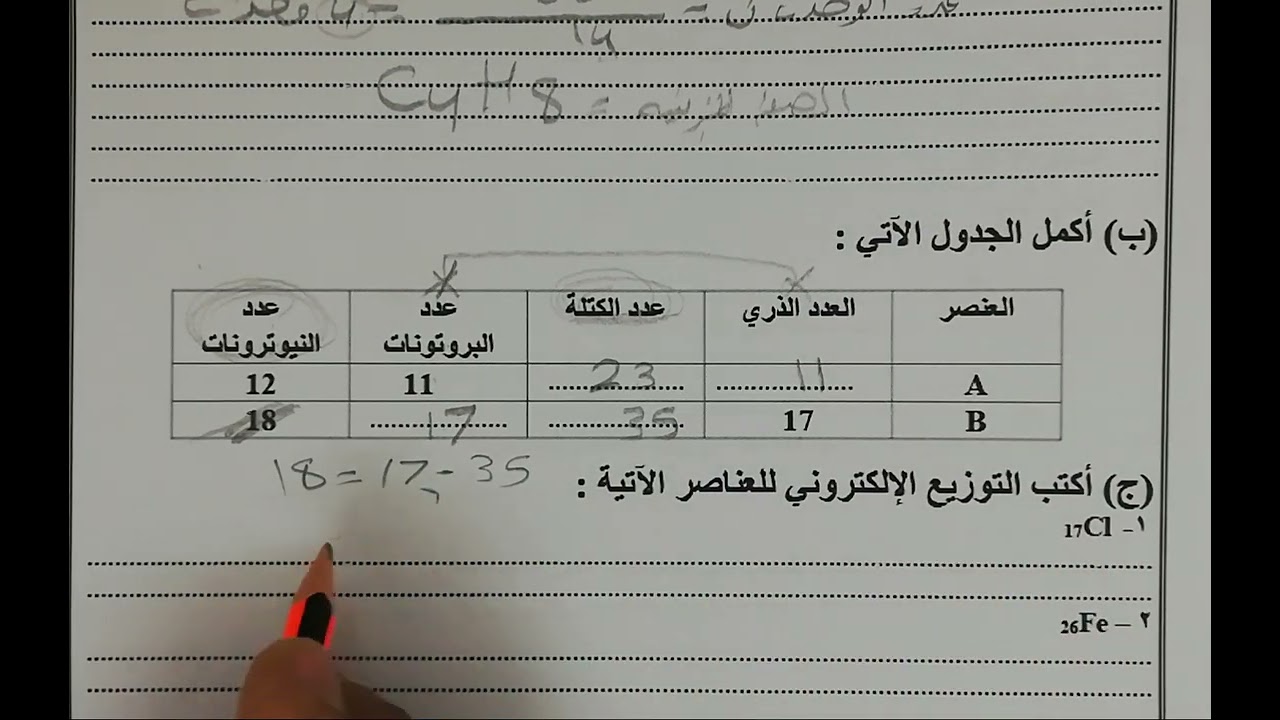 14
C4H8 = الصيغة الجزيئية
(ب) أكمل الجدول الآتي :
العنصر العدد الذري عدد الكتلة عدد البروتونات عدد النيوترونات
A 11 23 11 12
B 17 35 17 18
18 = 17 - 35
(ج) أكتب التوزيع الإلكتروني للعناصر الآتية :
١- 17Cl
٢- 26Fe